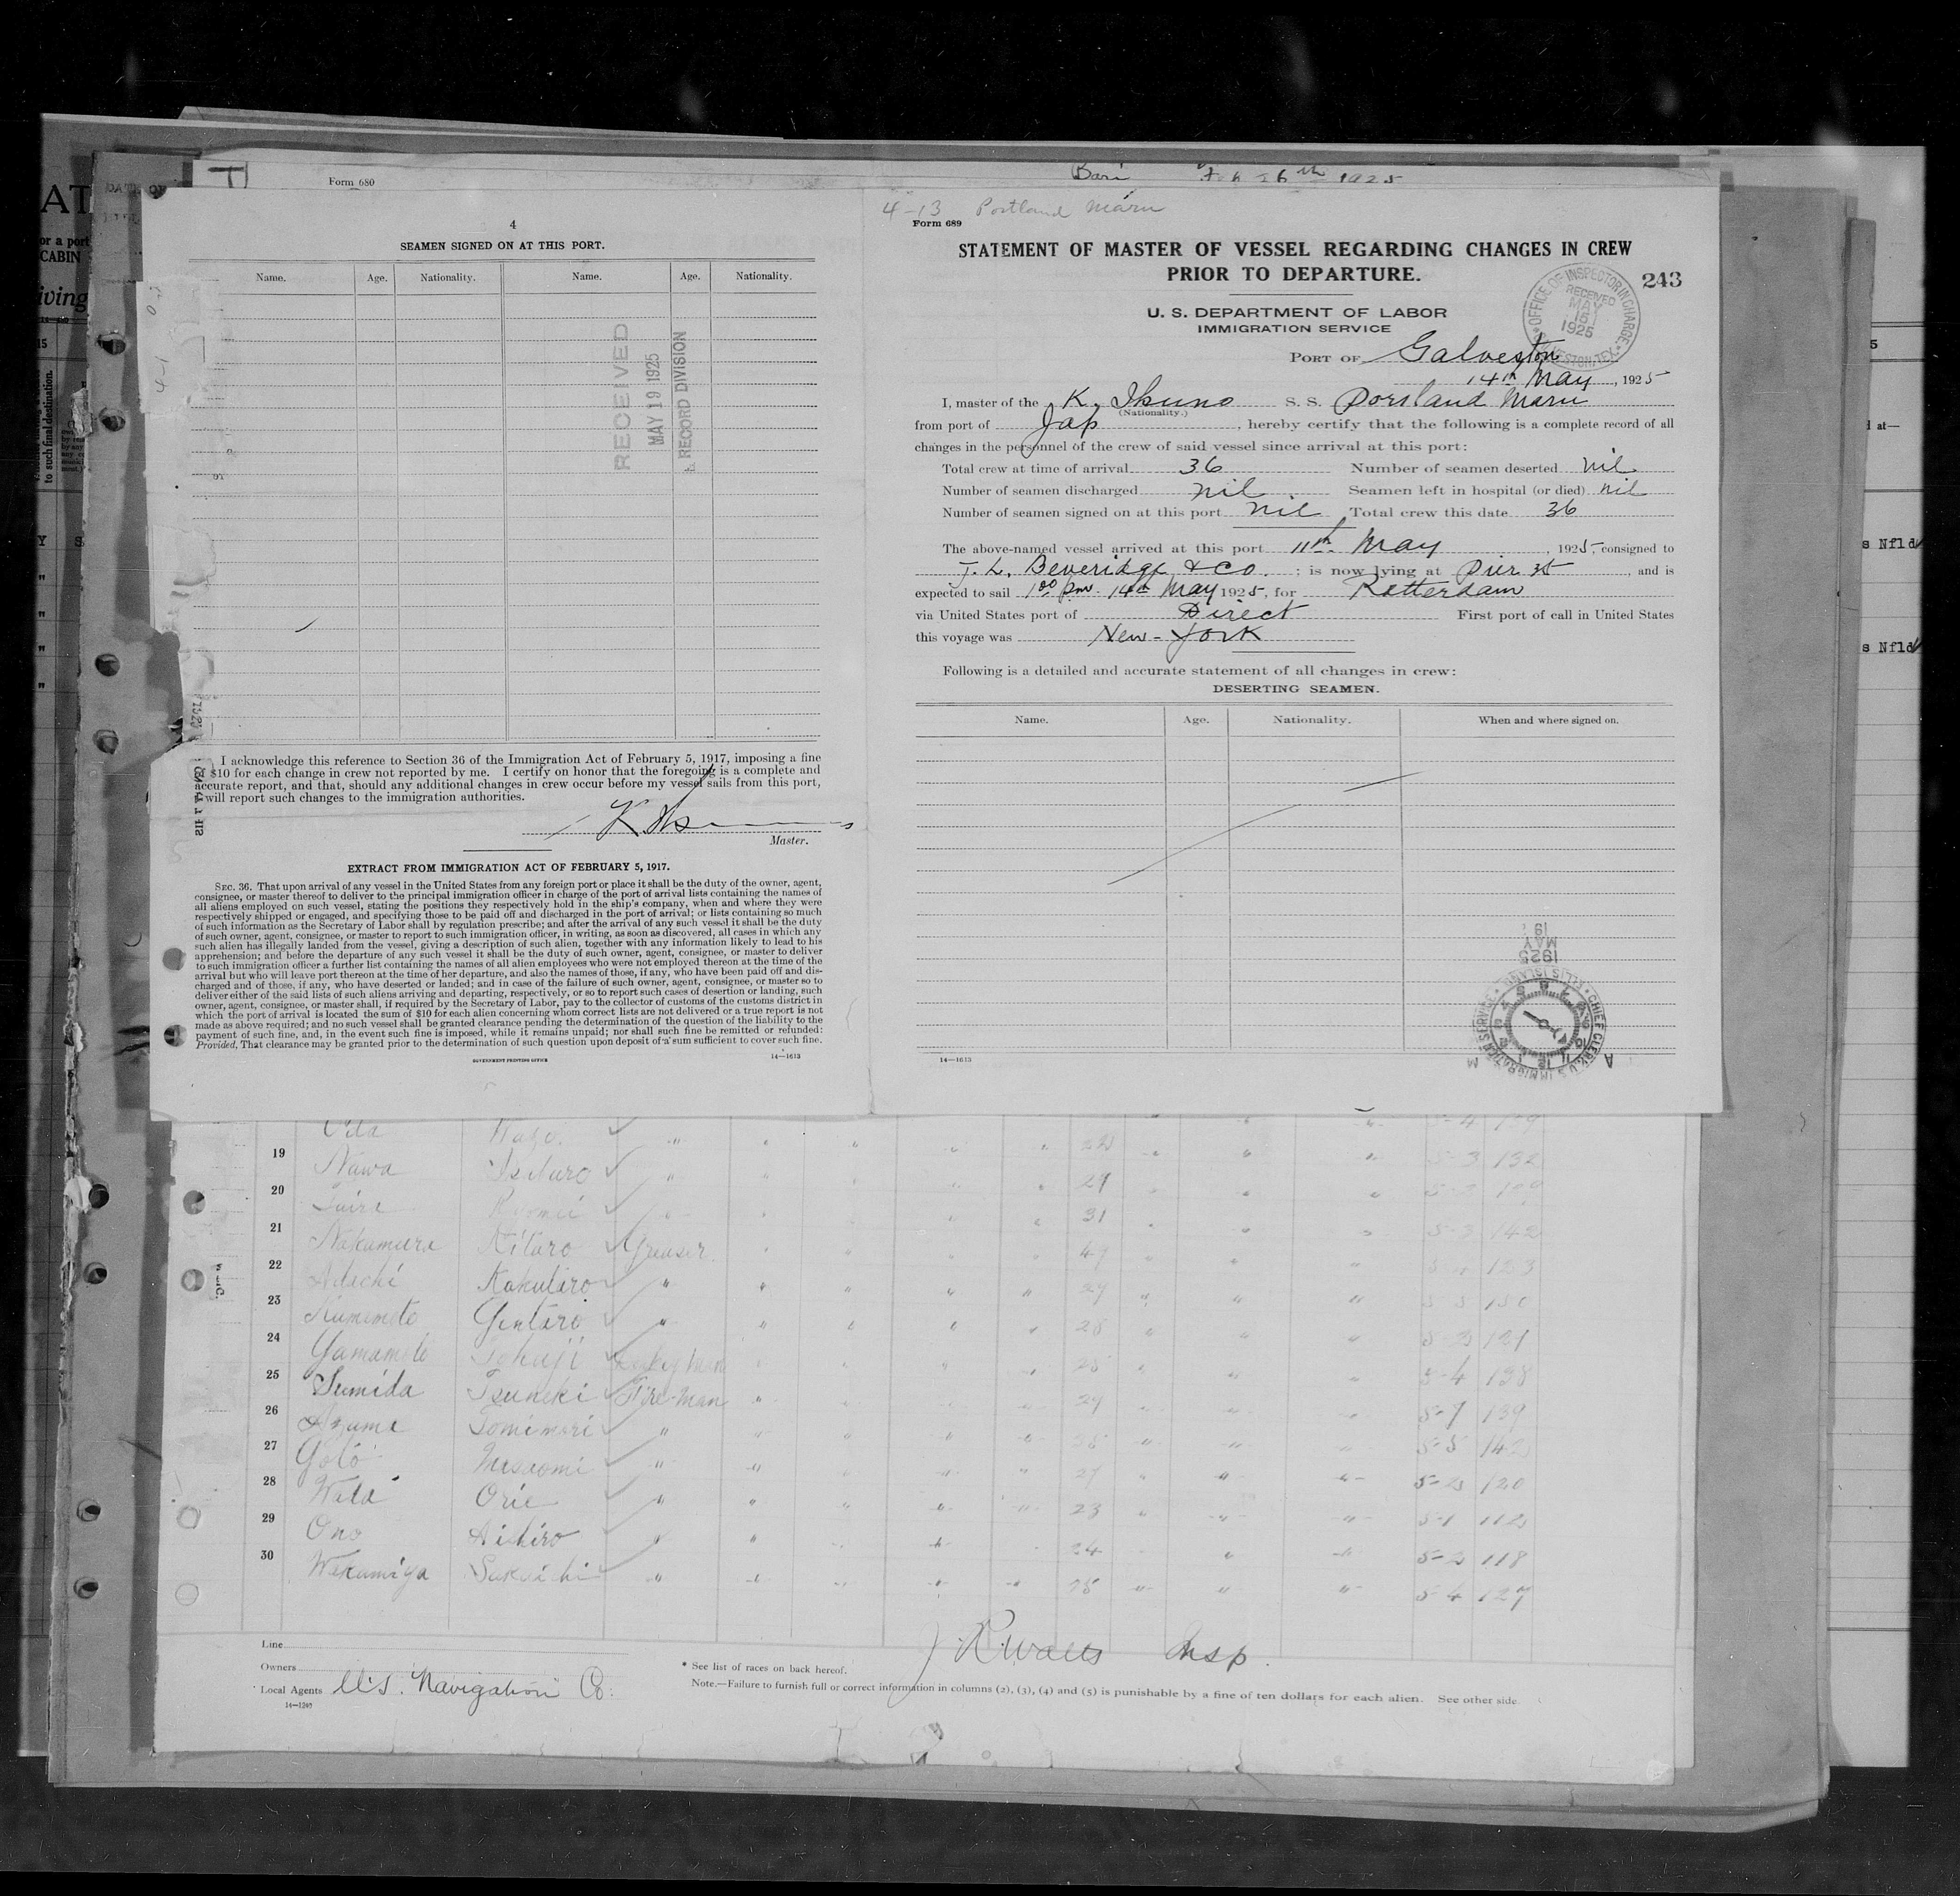 Form 680
4
SEAMEN SIGNED ON AT THIS PORT.
Name. Age. Nationality. Name. Age. Nationality.
RECEIVED
MAY 19 1925
RECORD DIVISION
I acknowledge this reference to Section 36 of the Immigration Act of February 5, 1917, imposing a fine
$10 for each change in crew not reported by me. I certify on honor that the foregoing is a complete and
accurate report, and that, should any additional changes in crew occur before my vessel sails from this port,
will report such changes to the immigration authorities.
Master.
EXTRACT FROM IMMIGRATION ACT OF FEBRUARY 5, 1917.
SEC. 36. That upon arrival of any vessel in the United States from any foreign port or place it shall be the duty of the owner, agent,
consignee, or master thereof to deliver to the principal immigration officer in charge of the port of arrival lists containing the names of
all aliens employed on such vessel, stating the positions they respectively hold in the ship's company, when and where they were
respectively shipped or engaged, and specifying those to be paid off and discharged in the port of arrival; or lists containing so much
of such information as the Secretary of Labor shall by regulation prescribe; and after the arrival of any such vessel it shall be the duty
of such owner, agent, consignee, or master to report to such immigration officer, in writing, as soon as discovered, all cases in which any
such alien has illegally landed from the vessel, giving a description of such alien, together with any information likely to lead to his
apprehension; and before the departure of any such vessel it shall be the duty of such owner, agent, consignee, or master to deliver
to such immigration officer a further list containing the names of all alien employees who were not employed thereon at the time of the
arrival but who will leave port thereon at the time of her departure, and also the names of those, if any, who have been paid off and dis-
charged and of those, if any, who have deserted or landed; and in case of the failure of such owner, agent, consignee, or master so to
deliver either of the said lists of such aliens arriving and departing, respectively, or so to report such cases of desertion or landing, such
owner, agent, consignee, or master shall, if required by the Secretary of Labor, pay to the collector of customs of the customs district in
which the port of arrival is located the sum of $10 for each alien concerning whom correct lists are not delivered or a true report is not
made as above required; and no such vessel shall be granted clearance pending the determination of the question of the liability to the
payment of such fine, and, in the event such fine is imposed, while it remains unpaid; nor shall such fine be remitted or refunded:
Provided, That clearance may be granted prior to the determination of such question upon deposit of a sum sufficient to cover such fine.
GOVERNMENT PRINTING OFFICE 14—1613
Bari 26th 1925
4-13 Portland Maru
Form 689
STATEMENT OF MASTER OF VESSEL REGARDING CHANGES IN CREW
PRIOR TO DEPARTURE.
243
U. S. DEPARTMENT OF LABOR
IMMIGRATION SERVICE
OFFICE OF INSPECTOR IN CHARGE
RECEIVED
MAY
15
1925
PORT OF Galveston
14th May, 1925
I, master of the K. Ikuno S. S. Portland Maru
(Nationality.)
from port of Jap, hereby certify that the following is a complete record of all
changes in the personnel of the crew of said vessel since arrival at this port:
Total crew at time of arrival 36 Number of seamen deserted nil
Number of seamen discharged nil Seamen left in hospital (or died) nil
Number of seamen signed on at this port nil Total crew this date 36
The above-named vessel arrived at this port 11th May, 1925, consigned to
J. L. Beveridge & Co.; is now lying at Pier 35, and is
expected to sail 1 00 pm. 14th May 1925, for Rotterdam
via United States port of Direct First port of call in United States
this voyage was New-York
Following is a detailed and accurate statement of all changes in crew:
DESERTING SEAMEN.
Name. Age. Nationality. When and where signed on.
1925
MAY
19
CHIEF CLERK U S IMMIGRATION SERVICE ELLIS ISLAND
14—1613
19 Nawa 29
20 31
21 Nakamura Kitaro Greaser 47
22 Adachi Kakutaro " 27
23 Kumemoto Gentaro " 28 121
24 Yamamoto Tokuji 25 5-4 138
25 Sumida Tsuneki Fire-man 29 5-7 139
26 Azuma Tominari "
27 Goto Masaomi " 27 120
28 Wada Orie " 23 5-1
29 Ono Aishiro " 24 118
30 Wakamiya Sakaichi " 25 5-4 127
Line
Owners
Local Agents Navigation Co.
14—1240
J. R. Watts Insp.
* See list of races on back hereof.
Note.—Failure to furnish full or correct information in columns (2), (3), (4) and (5) is punishable by a fine of ten dollars for each alien. See other side.
s Nfld
s Nfld